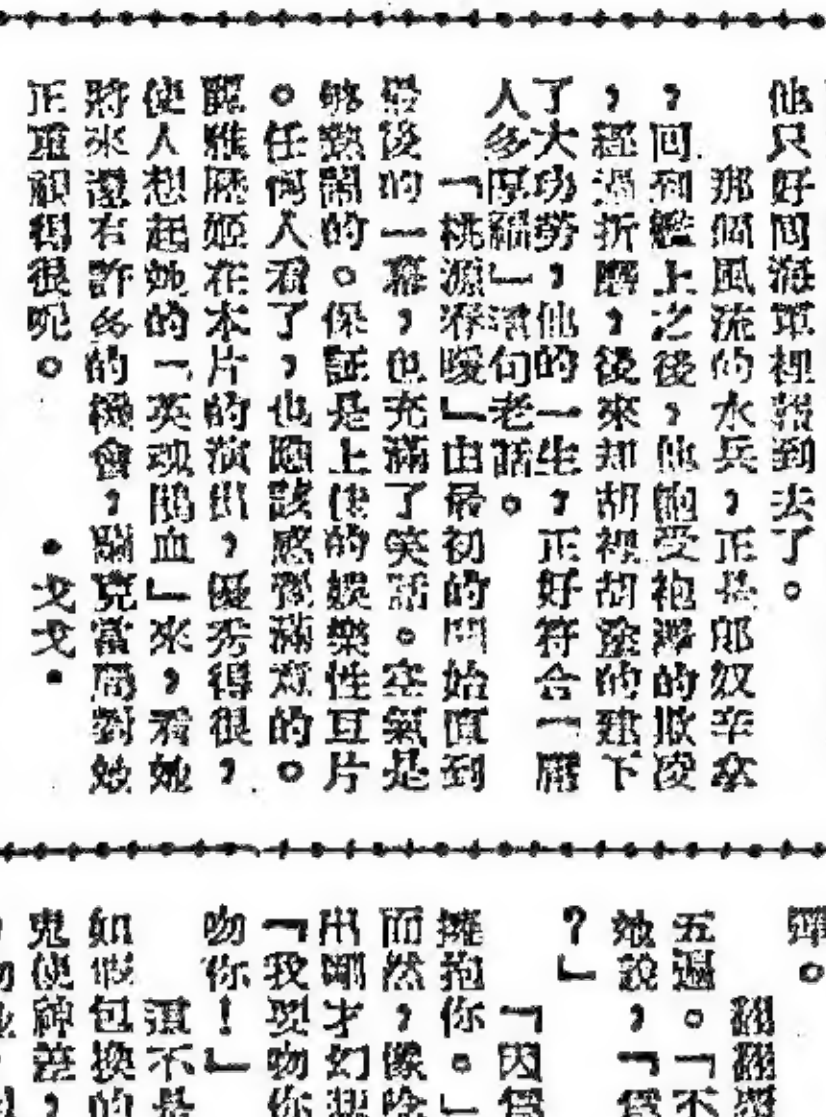 他只好回海軍裡報到去了。
那個風流的水兵,正是郎奴辛拿
,回到艦上之後,他飽受袍澤的欺凌
,經過折磨,後來却胡裡胡塗的建下
了大功勞,他的一生,正好符合一
人多厚福」這句老話。
「桃源春暖」由最初的開始直到
最後的一幕,也充滿了笑話。空氣是
够熱鬧的。保証是上佳的娛樂性巨片
。任何人看了,也應該感覺滿意的。
羅雅歷姬在本片的演出,優秀得很,
使人想起她的「英魂鵑血」來,看她
將來還有許多的機會,霸克當局對她
正重視得很呢。
•戈戈•
彈。
翻翻
五遍。「不
她說,「
?」
「因爲
擁抱你。」
而然,像
出剛才幻想
「我要吻你
吻你!」
還不是
如假包換的
鬼使神差,